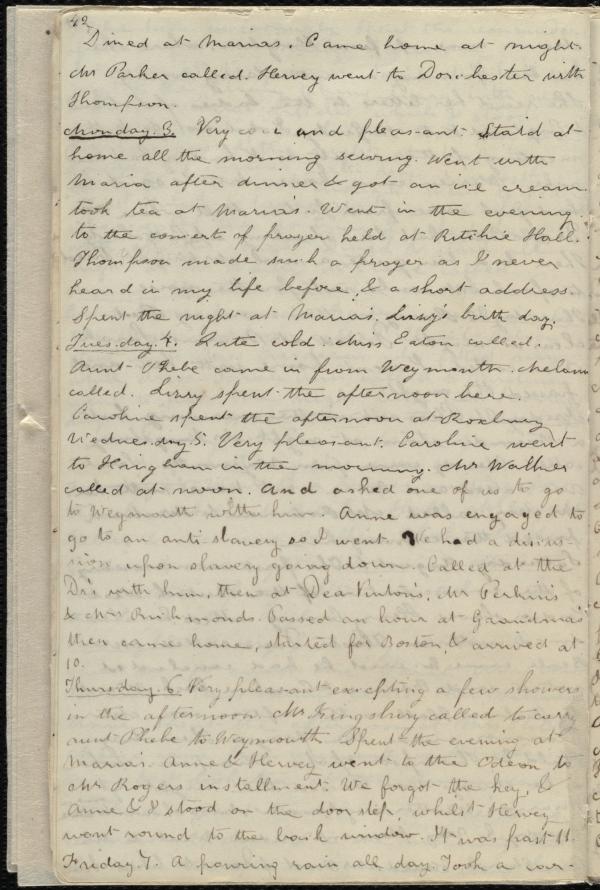 42
Dined at Maria's. Came home at night.
Mr Parker called. Hervey went to Dorchester with
Thompson.
Monday. 3. Very and pleasant. Staid at
home all the morning sewing. Went with
Maria after dinner & got an ice cream
took tea at Maria's. Went in the evening.
to the concert of prayer held at Ritchie Hall.
Thompson made such a prayer as I never
heard in my life before, & a short address.
Spent the night at Maria's. Lizzy's birth day.
Tues.day. 4. Quite cold. Miss Eaton called.
Aunt Phebe came in from Weymouth.
called. Lizzy spent the afternoon here.
Caroline spent the afternoon at Roxbury
Wednes.day. 5. Very pleasant. Caroline went
to Hingham in the morning. Mr Walker
called at noon. And asked one of us to go
to Weymouth with him. Anne was engaged to
go to an anti slavery so I went. We had a discus-
sion upon slavery going down. Called at the
Dr's with him, then at Dea Vinton's, Mr Perkins
& Mrs Richmonds. Passed an hour at Grandmas
then came home, started for Boston, & arrived at
10.
Thursday. 6. Very pleasant excepting a few showers
in the afternoon. Mr Kingsbury called to carry
aunt Phebe to Weymouth. Spent the evening at
Maria's. Anne & Hervey went to the Odeon to
Mr Rogers installment. We forgot the key, &
Anne & I stood on the door step, whilst Hervey
went round to the back window. It was past 11.
Friday. 7. A pouring rain all day. Took a